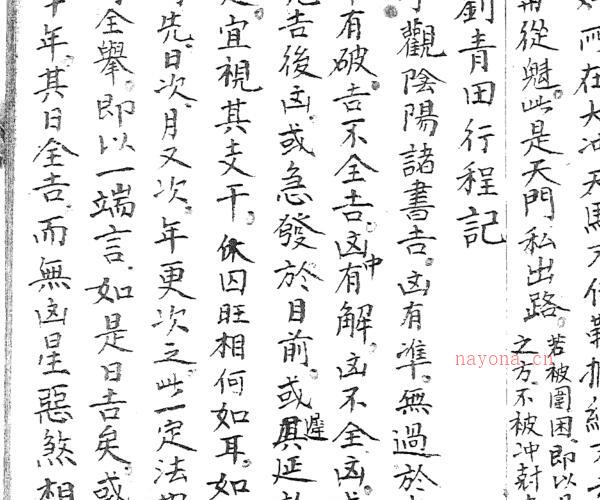 如所在大冲天馬
從魁此是天門私出路若被圍困即以
之方不被冲尅
劉青田行程記
觀陰陽諸書吉凶有準無過於
有破吉不全吉凶中有解凶不全凶
先吉後凶或急發於目前或遲其延
宜視其支干休囚旺相何如耳如
先日次月又次年更次之此一定法
全舉即以一端言如是日吉矣或
年其日全吉而無凶星惡煞相
nayona.cn